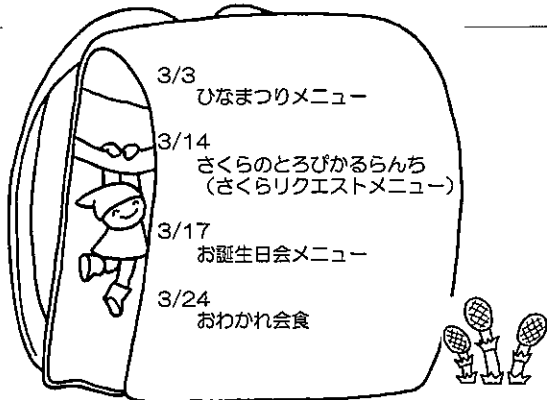 3/3
ひなまつりメニュー
3/14
さくらのとろぴかるらんち
（さくらリクエストメニュー）
3/17
お誕生日会メニュー
3/24
おわかれ会食